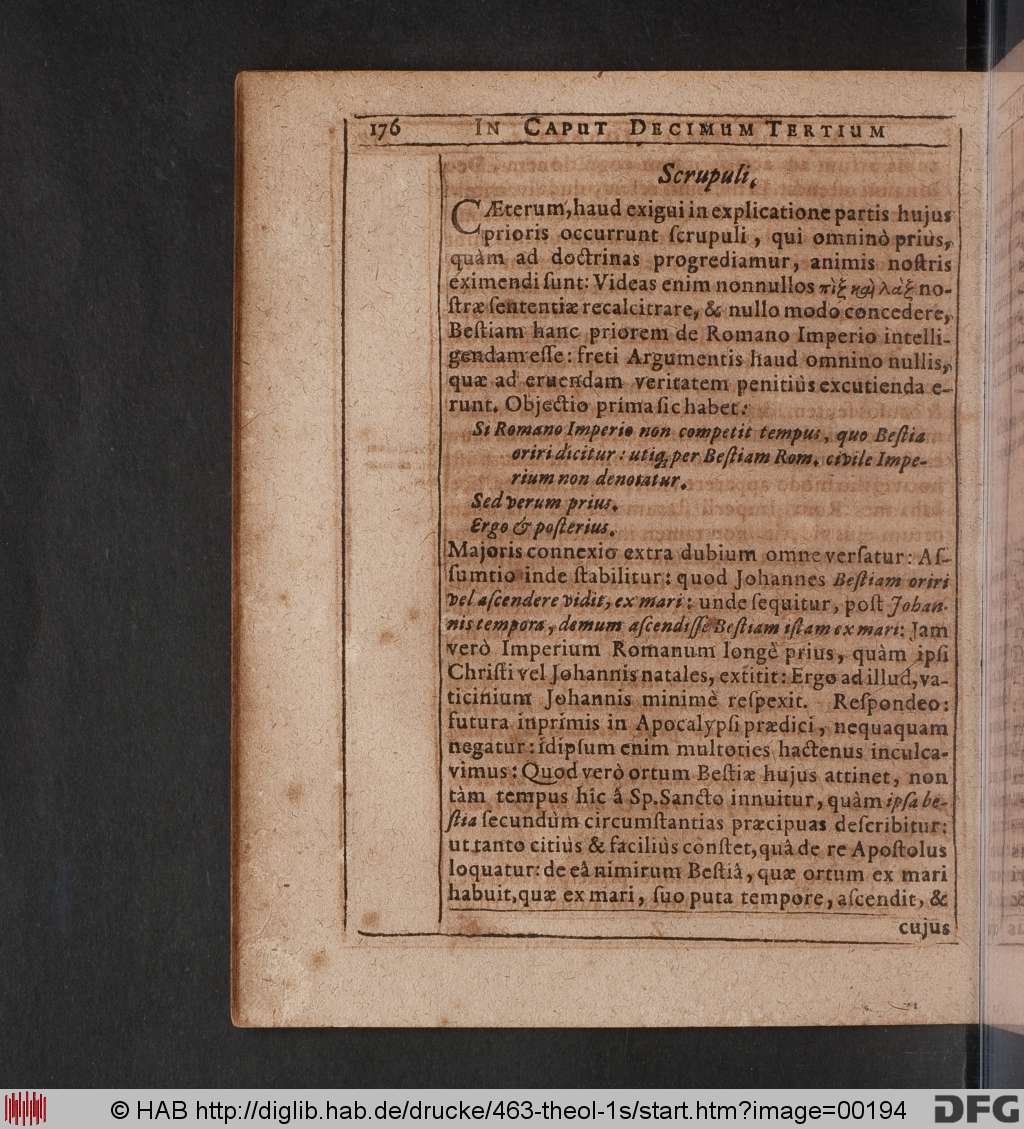 176 IN CAPUT DECIMUM TERTIUM
Scrupuli.
CÆterum, haud exigui in explicatione partis hujus
prioris occurrunt ſcrupuli, qui omninò priùs,
quàm ad doctrinas progrediamur, animis noſtris
eximendi ſunt: Videas enim nonnullos πὶξ καὶ λὰξ no-
ſtræ ſententiæ recalcitrare, & nullo modo concedere,
Beſtiam hanc priorem de Romano Imperio intelli-
gendam eſſe: freti Argumentis haud omnino nullis,
quæ ad eruendam veritatem penitiùs excutienda e-
runt. Objectio prima ſic habet:
Si Romano Imperio non competit tempus, quo Beſtia
oriri dicitur: utiq; per Beſtiam Rom. civile Impe-
rium non denotatur.
Sed verum prius.
Ergo & poſterius.
Majoris connexio extra dubium omne verſatur: Aſ-
ſumtio inde ſtabilitur: quod Johannes Beſtiam oriri
vel aſcendere vidit, ex mari: unde ſequitur, poſt Johan-
nis tempora, demum aſcendiſſe Beſtiam iſtam ex mari: Jam
verò Imperium Romanum longè prius, quàm ipſi
Chriſti vel Johannis natales, extitit: Ergo ad illud, va-
ticinium Johannis minimè reſpexit. Reſpondeo:
futura inprimis in Apocalypſi prædici, nequaquam
negatur: idipſum enim multoties hactenus inculca-
vimus: Quod verò ortum Beſtiæ hujus attinet, non
tàm tempus hîc â Sp. Sancto innuitur, quàm ipſa be-
ſtia ſecundùm circumſtantias præcipuas deſcribitur:
ut tanto citiùs & faciliùs cònſtet, quâ de re Apoſtolus
loquatur: de eâ nimirum Beſtiâ, quæ ortum ex mari
habuit, quæ ex mari, ſuo puta tempore, aſcendit, &
cujus
© HAB http://diglib.hab.de/drucke/463-theol-1s/start.htm?image=00194
DFG